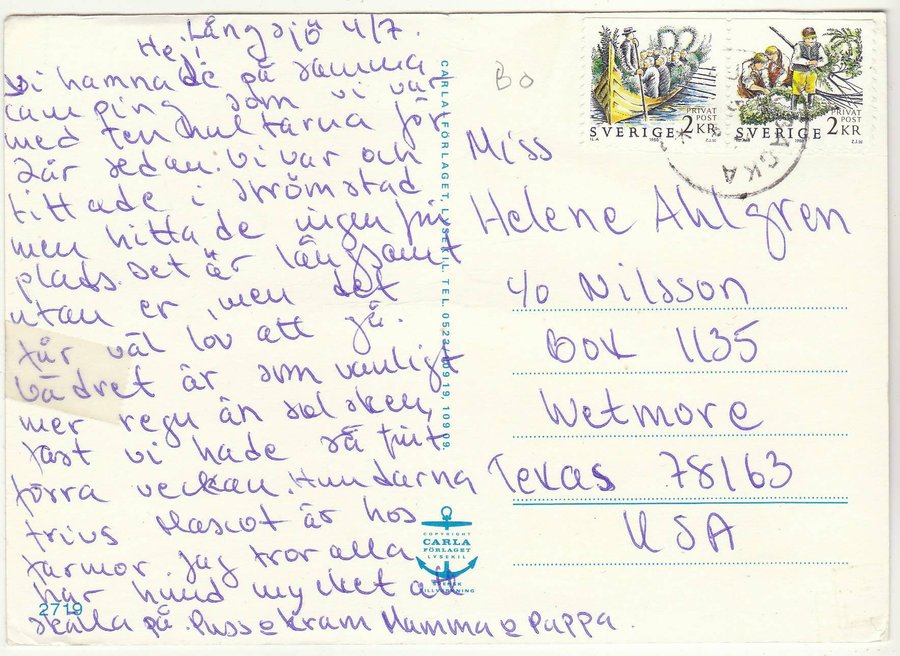 Långsjö 4/7.
Hej!
Vi hamnade på samma
camping som vi var
med tenhultarna för
2år sedan. Vi var och
tittade i strömstad
men hittade ingen fin
plads. Det är långsamt
utan er, men det
får väl lov att gå.
Vädret är som vanligt
mer regn än solsken,
fast vi hade så fint
förra veckan. Hundarna
trivs Mascot är hos
farmor. Jag tror alla
har hund mycket att
skälla på. Puss o kram Mamma o Pappa.
2719
CARLA FÖRLAGET, LYSEKIL. TEL. 0523/109 19, 109 09.
COPYRIGHT
CARLA
FÖRLAGET
LYSEKIL
SVENSK
TILLVERKNING
BO
PRIVAT
POST
SVERIGE 2 KR
PRIVAT
POST
SVERIGE 2 KR
Miss
Helene Ahlgren
c/o Nilsson
Box 1135
Wetmore
Texas 78163
USA